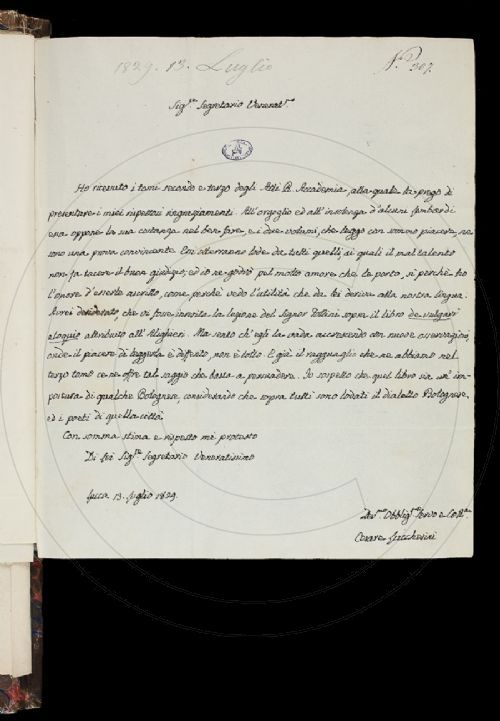 1829. 13. Luglio
N.º 307.
Sig.re Segretario Venerat.mo
Ho ricevuto i tomi secondo e terzo degli Atti R. Accademia, alla quale la prego di
presentare i miei rispettosi ringraziamenti. All'orgoglio ed all'insolenza d'alcuni Lombardi
essa oppone la sua costanza nel ben fare, e i due volumi, che leggo con sommo piacere, ne
sono una prova convincente. Essi otterranno lode da tutti quelli ai quali il mal talento
non fa tacere il buon giudizio, ed io ne godrò pel molto amore che le porto, sì perchè ho
l'onore d'esserle ascritto, come perchè vedo l'utilità che da lei deriva alla nostra lingua.
Avrei desiderato, che vi fosse inserita la lezione del Signor sopra il libro de vulgari
eloquio attribuito all'Alighieri. Ma sento ch'egli la vada accrescendo con nuove osservazioni,
onde il piacere di leggerla è differito, non è tolto. E già il ragguaglio che ne abbiamo nel
terzo tomo ce ne offre tal saggio che basta a persuadere. Io sospetto che quel libro sia un'im-
postura di qualche Bolognese, considerando che sopra tutti sono lodati il dialetto Bolognese,
ed i poeti di quella città.
Con somma stima e rispetto mi protesto
Di Lei Sig.re Segretario Veneratissimo
Lucca 13. Luglio 1829.
Dev.mo Obblig.mo Servo e Coll.a
Cesare Lucchesini